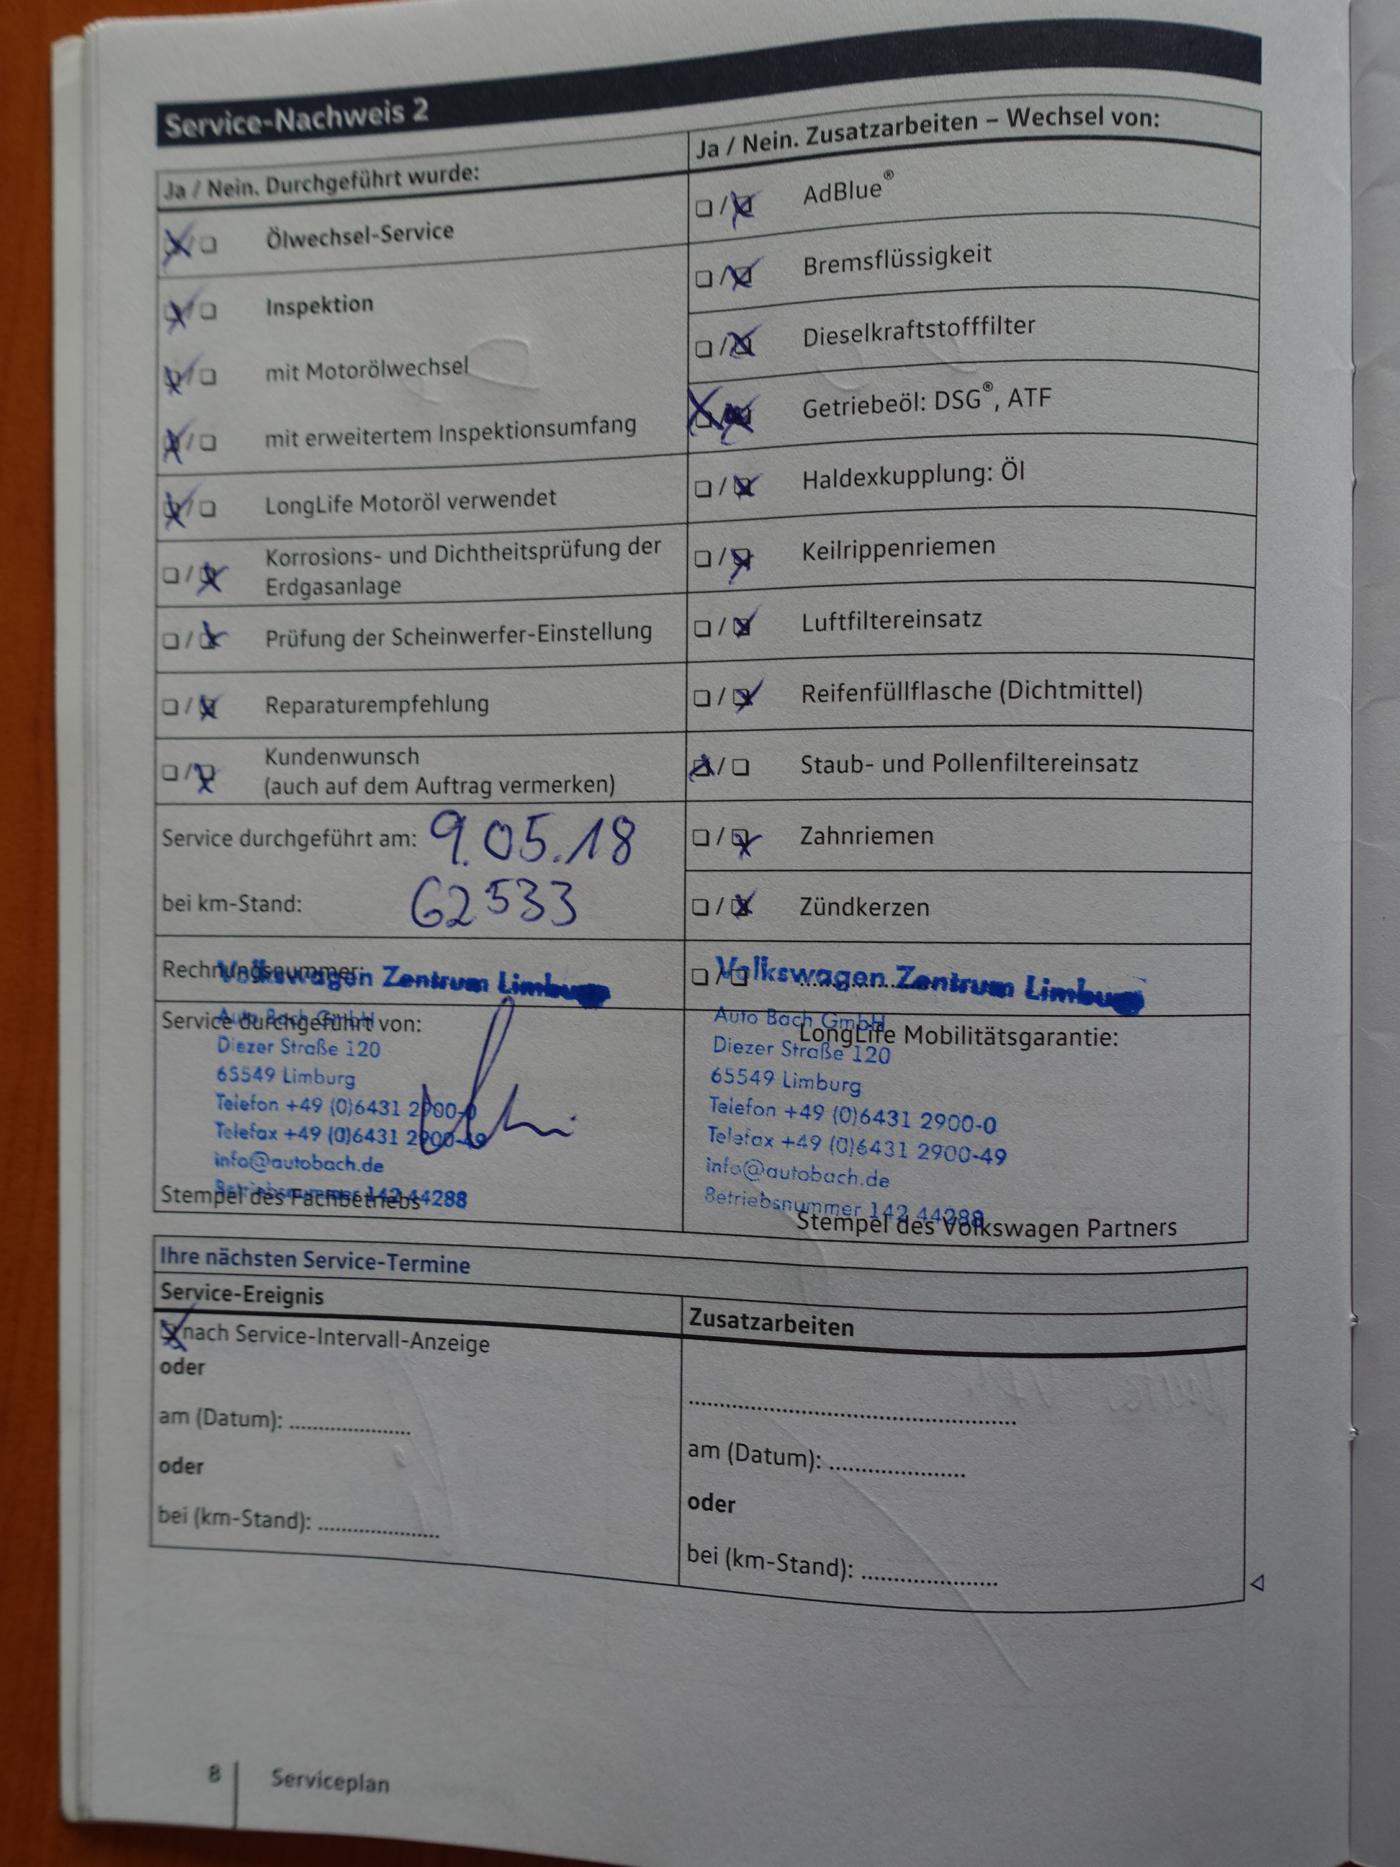 Service-Nachweis 2
Ja / Nein. Durchgeführt wurde:
Ölwechsel-Service
Inspektion
mit Motorölwechsel
mit erweitertem Inspektionsumfang
LongLife Motoröl verwendet
Korrosions- und Dichtheitsprüfung der
Erdgasanlage
Prüfung der Scheinwerfer-Einstellung
Reparaturempfehlung
Kundenwunsch
(auch auf dem Auftrag vermerken)
Service durchgeführt am: 9.05.18
bei km-Stand: 62533
Rechnungsnummer:
Volkswagen Zentrum Limburg
Service durchgeführt von:
Auto Bach GmbH
Diezer Straße 120
65549 Limburg
Telefon +49 (0)6431 2900-0
Telefax +49 (0)6431 2900-49
info@autobach.de
Betriebsnummer 142 44288
Stempel des Fachbetriebs
Ja / Nein. Zusatzarbeiten – Wechsel von:
AdBlue®
Bremsflüssigkeit
Dieselkraftstofffilter
Getriebeöl: DSG®, ATF
Haldexkupplung: Öl
Keilrippenriemen
Luftfiltereinsatz
Reifenfüllflasche (Dichtmittel)
Staub- und Pollenfiltereinsatz
Zahnriemen
Zündkerzen
Volkswagen Zentrum Limburg
Auto Bach GmbH
LongLife Mobilitätsgarantie:
Diezer Straße 120
65549 Limburg
Telefon +49 (0)6431 2900-0
Telefax +49 (0)6431 2900-49
info@autobach.de
Betriebsnummer 142 44288
Stempel des Volkswagen Partners
Ihre nächsten Service-Termine
Service-Ereignis
nach Service-Intervall-Anzeige
oder
am (Datum): ......................
oder
bei (km-Stand): ......................
Zusatzarbeiten
am (Datum): ......................
oder
bei (km-Stand): ......................
8 Serviceplan